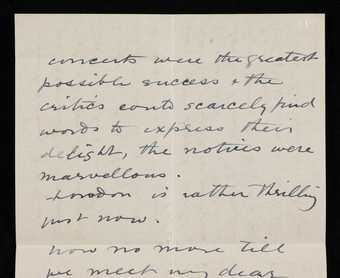 concerts were the greatest
possible success & the
critics could scarcely find
words to express their
delight, the notices were
marvellous.
London is rather thrilling
just now.
now no more till
we meet my dear